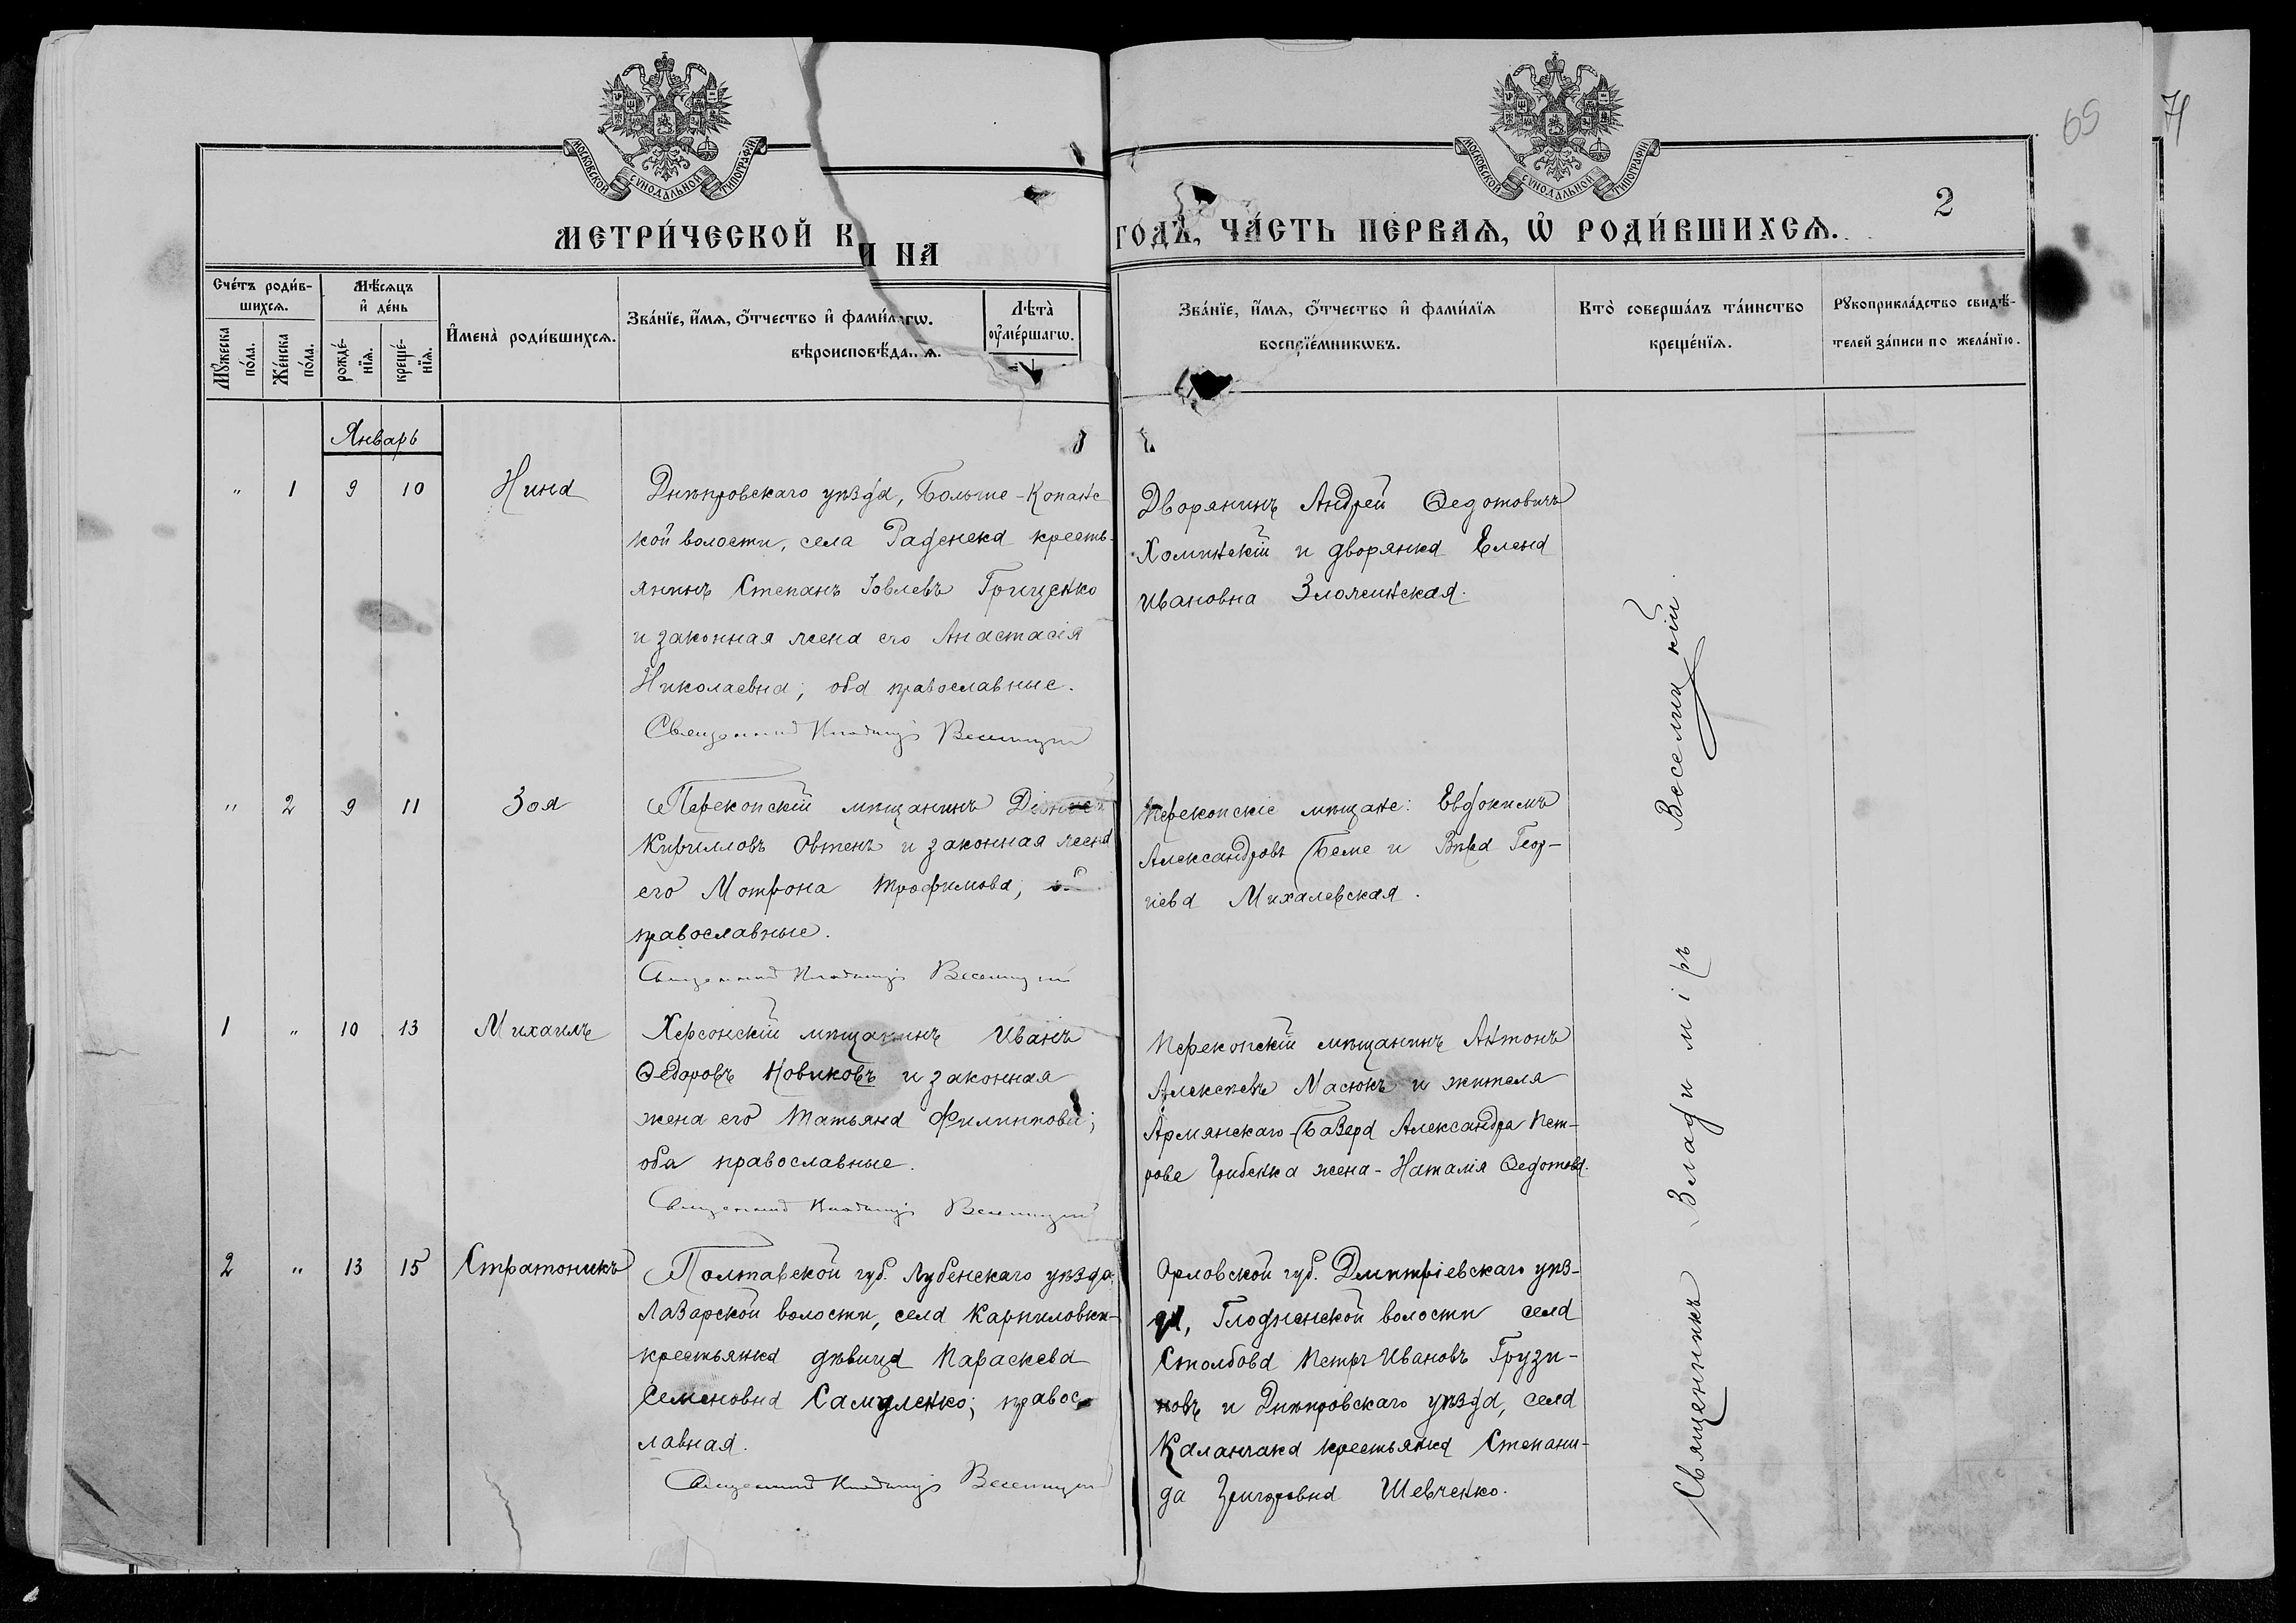 65
71
2
МОСКОВСКОЙ СѴНОДАЛЬНОЙ ТИПОГРАФІИ
МОСКОВСКОЙ СѴНОДАЛЬНОЙ ТИПОГРАФІИ
МЕТРИ́ЧЕСКОЙ К И НА
ГОДЪ, ЧА́СТЬ ПЕРВАѦ, Ѿ РОДИ́ВШИХСѦ.
Сче́тъ роди́в-
шихсѧ.
Мꙋ́жеска по́ла.
Же́нска по́ла.
Мѣ́сѧцъ
и҆ де́нь
рожде́-
нїѧ.
креще́-
нїѧ.
И҆мена̀ роди́вшихсѧ.
Зва́нїе, и҆́мѧ, ѻ҆́тчество и҆ фами́л гѡ.
вѣроисповѣ́да ѧ.
Лѣта̀
оу҆ме́ршагѡ.
Зва́нїе, и҆́мѧ, ѻ҆́тчество и҆ фами́лїѧ
воспрїе́мникѡвъ.
Кто̀ соверша́лъ та́инство
креще́нїѧ.
Рꙋкоприкла́дство свидѣ́-
телей за́писи по жела́нїю.
Январь
" 1 9 10 Нина
Днѣпровскаго уѣзда, Больше-Копанс
кой волости, села Раденска кресть-
янинъ Степанъ Іовлевъ Грищенко
и законная жена его Анастасія
Николаевна; оба православные.
Священникъ Владиміръ Веселицкій
Дворянинъ Андрей Ѳедотовичъ
Хоминскій и дворянка Елена
Ивановна Злочевская.
" 2 9 11 Зоя
Перекопскій мѣщанинъ
Кирилловъ Овтенъ и законная жена
его Мотрона Трофимова;
православные.
Священникъ Владиміръ Веселицкій
Перекопскіе мѣщане: Евдокимъ
Александровъ Беме и Вѣра Геор-
гіева Михалевская.
1 " 10 13 Михаилъ
Херсонскій мѣщанинъ Иванъ
Ѳедоровъ Новиковъ и законная
жена его Татьяна Филиппова;
оба православные.
Священникъ Владиміръ Веселицкій
Перекопскій мѣщанинъ Антонъ
Алексѣевъ Масюкъ и жителя
Армянскаго-Базара Александра Пет-
рове Грибенка жена-Наталія Ѳедотова.
2 " 13 15 Стратоникъ
Полтавской губ. Лубенскаго уѣзда,
Лазарской волости, села Карпиловки-
крестьянка дѣвица Параскева
Семеновна Самуленко; правос-
лавная.
Священникъ Владиміръ Веселицкій
Орловской губ. Дмитріевскаго уѣз-
да, Глодненской волости села
Столбова Петръ Ивановъ Грузи-
новъ и Днѣпровскаго уѣзда, села
Каланчака крестьянка Степани-
да Григорьевна Шевченко.
Священникъ Владиміръ Веселицкій.